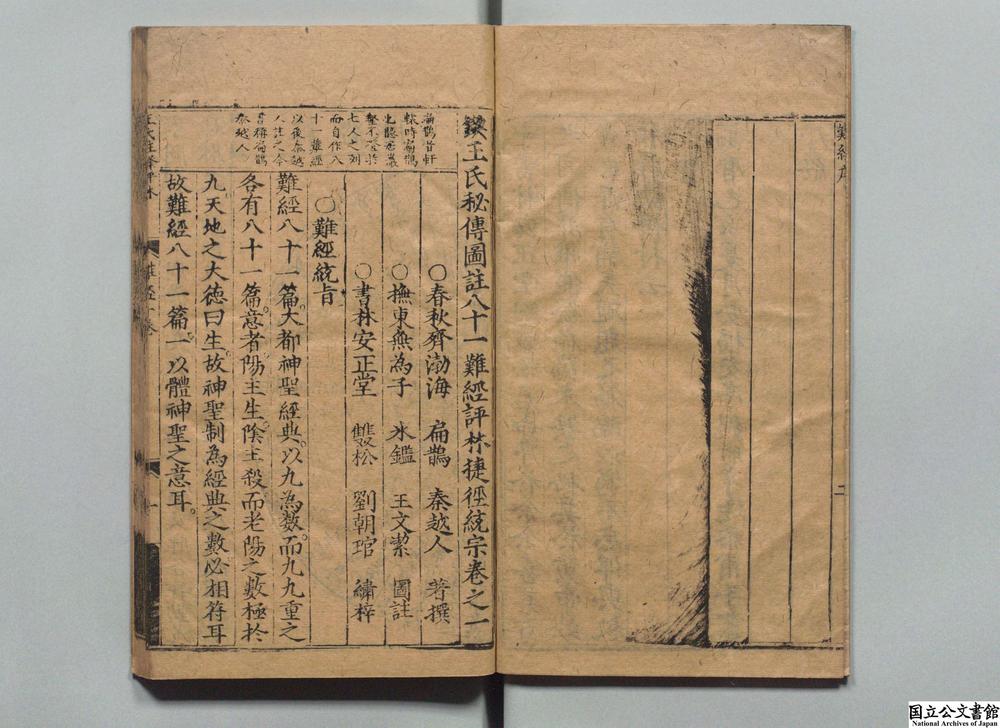 難經序
二
鍥王氏秘傳圖註八十一難經評林捷徑統宗卷之一
轅時扁鵲
七人之列
而自作八
十一難經
以後秦越
人註之今
書稱扁鵲
秦越人
○春秋齊渤海 扁鵲 秦越人 著撰
○撫東無為子 氷鑑 王文潔 圖註
○書林安正堂 雙松 劉朝琯 繡梓
○難經統旨
難經八十一篇。大都神聖經典。以九為数。而九九重之
各有八十一篇。意者陽主生。陰主殺。而老陽之數極於
九。天地之大徳曰生。故神聖制為經典之數。必相符耳
故難經八十一篇。一以體神聖之意耳。
難經一卷
一
国立公文書館
National Archives of Japan